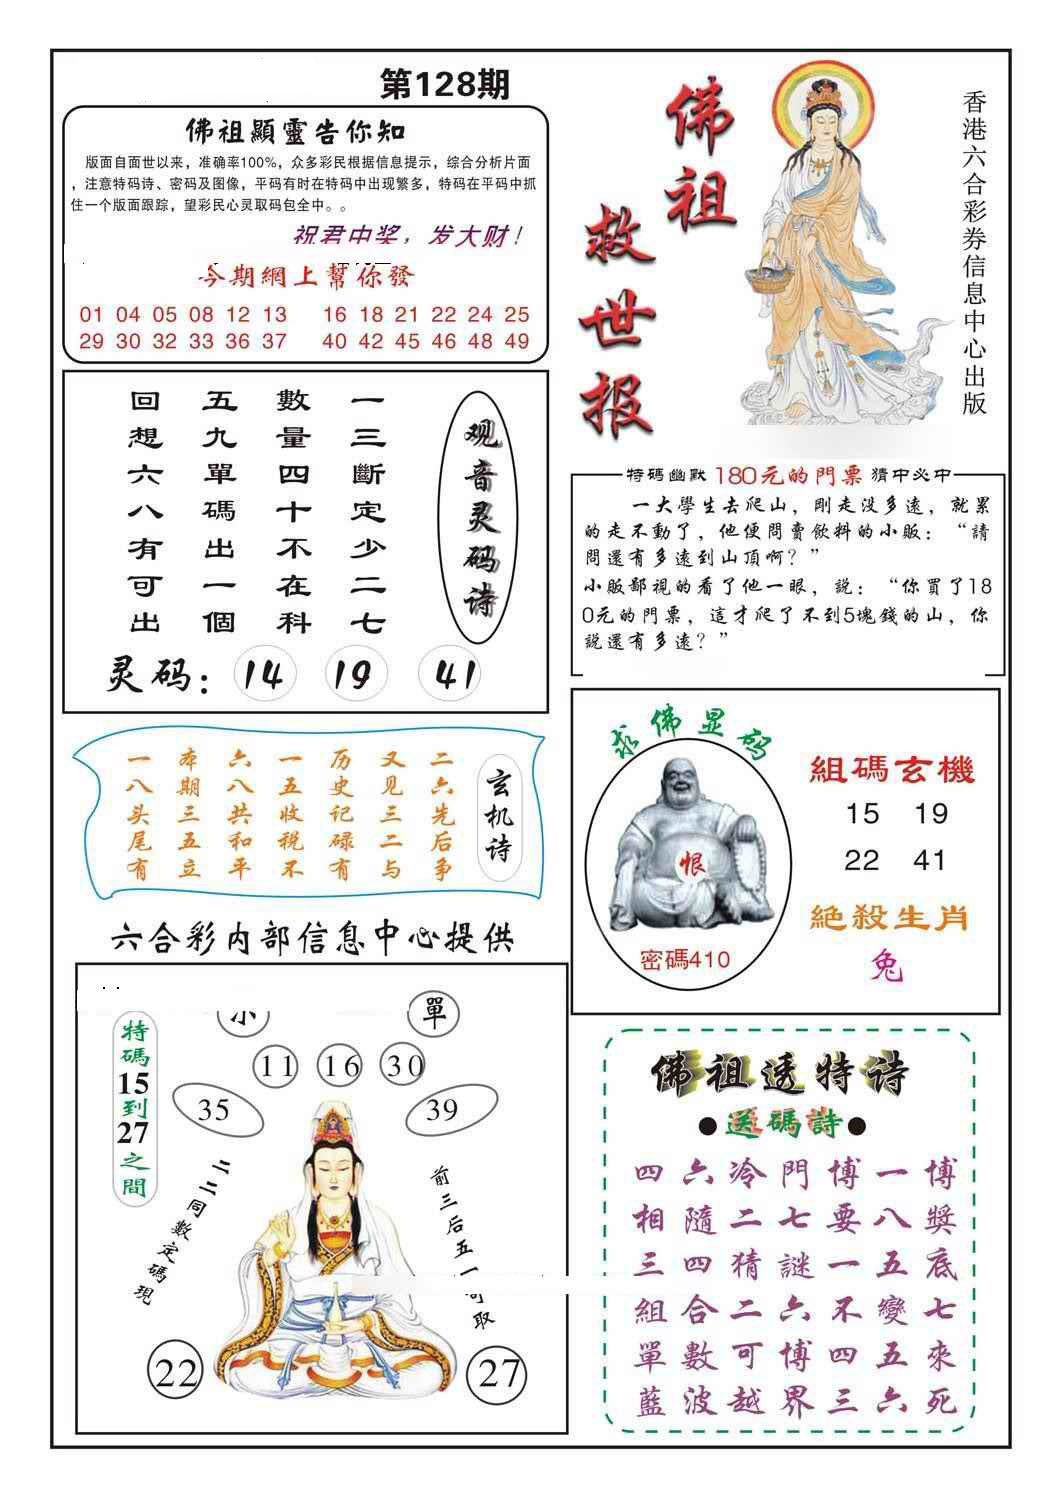 第128期
佛祖顯靈告你知
版面自面世以来，准确率100%，众多彩民根据信息提示，综合分析片面
，注意特码诗、密码及图像，平码有时在特码中出现繁多，特码在平码中抓
住一个版面跟踪，望彩民心灵取码包全中。。
祝君中奖，发大财！
今期網上幫你發
01 04 05 08 12 13 16 18 21 22 24 25
29 30 32 33 36 37 40 42 45 46 48 49
佛祖
救世报
香港六合彩券信息中心出版
观音灵码诗
一三斷定少二七
數量四十不在科
五九單碼出一個
回想六八有可出
灵码：14 19 41
特码幽默 180元的門票 猜中必中
一大學生去爬山，剛走没多遠，就累
的走不動了，他便問賣飲料的小販：“請
問還有多遠到山頂啊？”
小販鄙視的看了他一眼，説：“你買了18
0元的門票，這才爬了不到5塊錢的山，你
説還有多遠？”
玄机诗
二六先后争
又见三二与
历史记碌有
一五收税不
六八共和平
本期三五立
一八头尾有
求佛显码
恨
密碼410
組碼玄機
15 19
22 41
絶殺生肖
兔
六合彩内部信息中心提供
單
11 16 30
35 39
特碼15到27之間
二二同數定碼現
前三后五一 取
22 27
佛祖透特诗
●送碼詩●
四六冷門博一博
相隨二七要八獎
三四猜謎一五底
組合二六不變七
單數可博四五來
藍波越界三六死